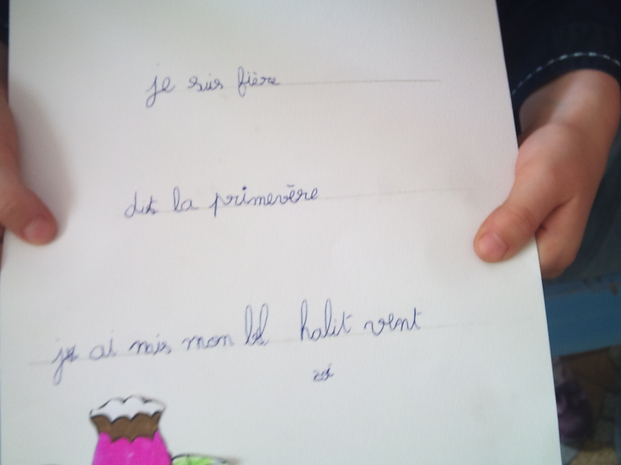 je suis fière
dit la primevère
je ai mis mon bel halit vent